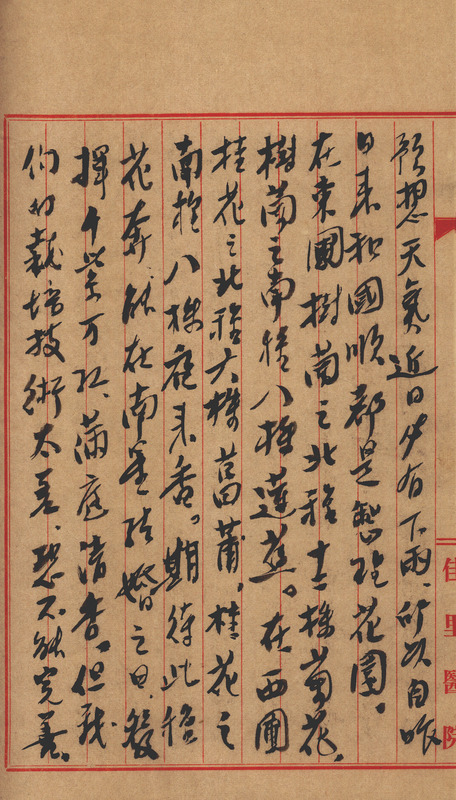 預想天氣近日少有下雨，所以自昨
日來和國順都是整理花園。
在東園樹蘭之北移十二株菊花，
樹蘭之南積八種蓮蕉。在西園
桂花之北移六株菖蒲，桂花之
南移八株夜來香。期待此種
花卉能在南星結婚之日，發
揮千紫万紅、滿庭清香。但我
們的栽培技術太差，恐不能完善。
佳里醫院